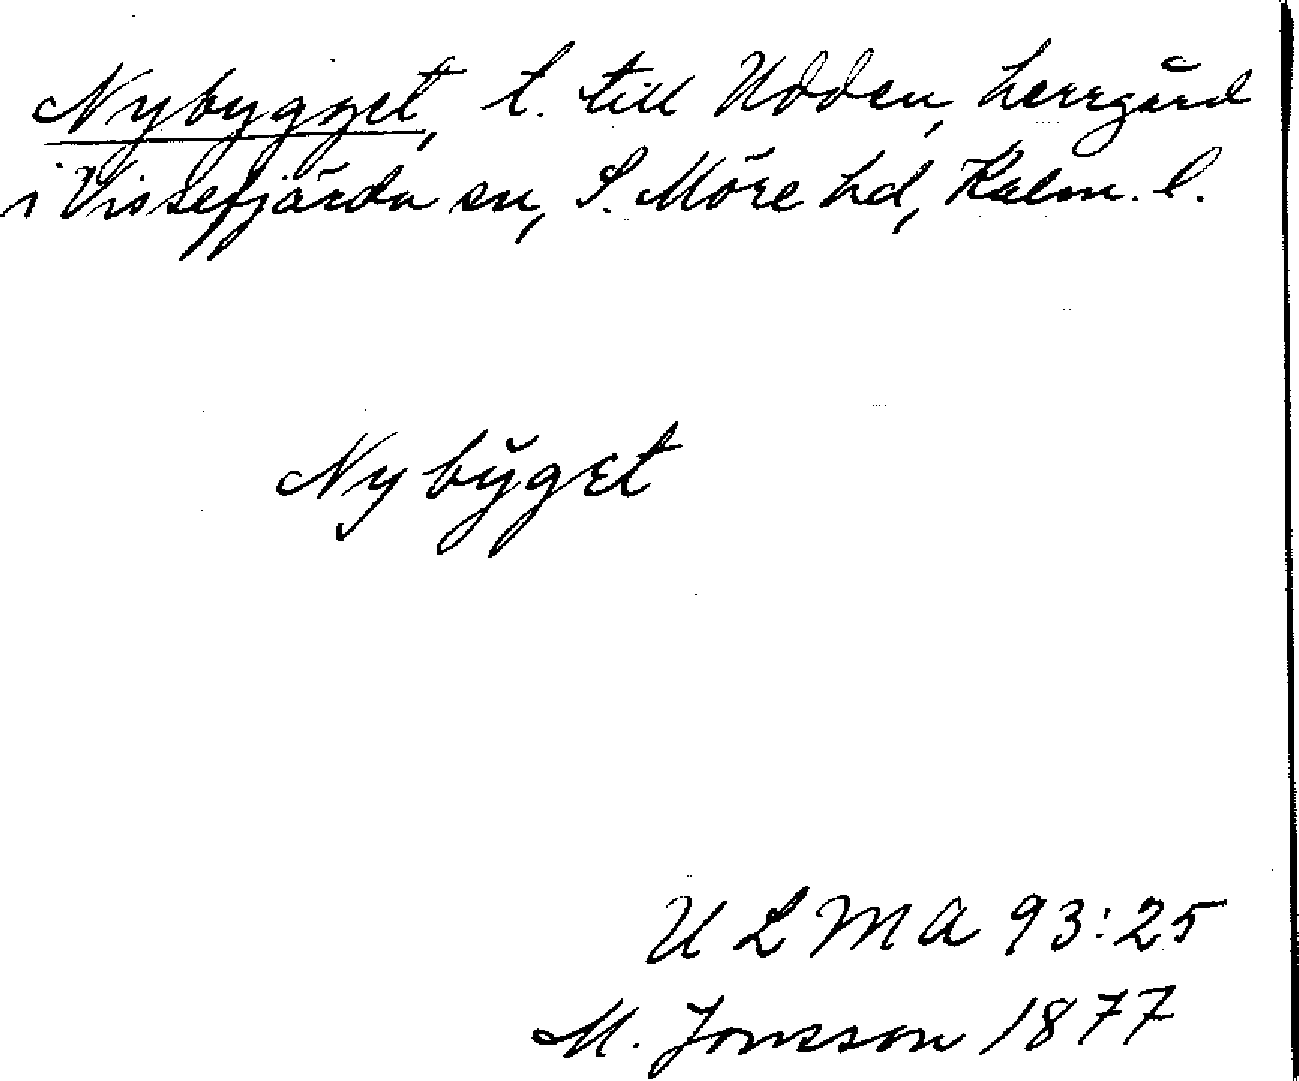 Nybygget, t. till Udden, herrgård
i Vissefjärda sn, S. Möre hd, Kalm. l.
Nyby̆get
U L M A 93:25
M. Jonsson 1877